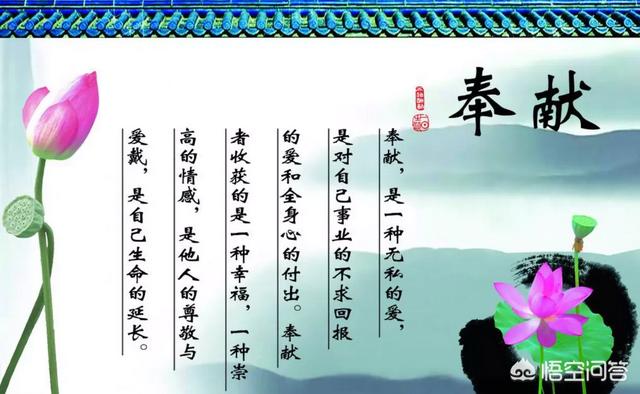 奉献
奉献，是一种无私的爱，
是对自己事业的不求回报
的爱和全身心的付出。奉献
者收获的是一种幸福，一种崇
高的情感，是他人的尊敬与
爱戴，是自己生命的延长。
悟空问答